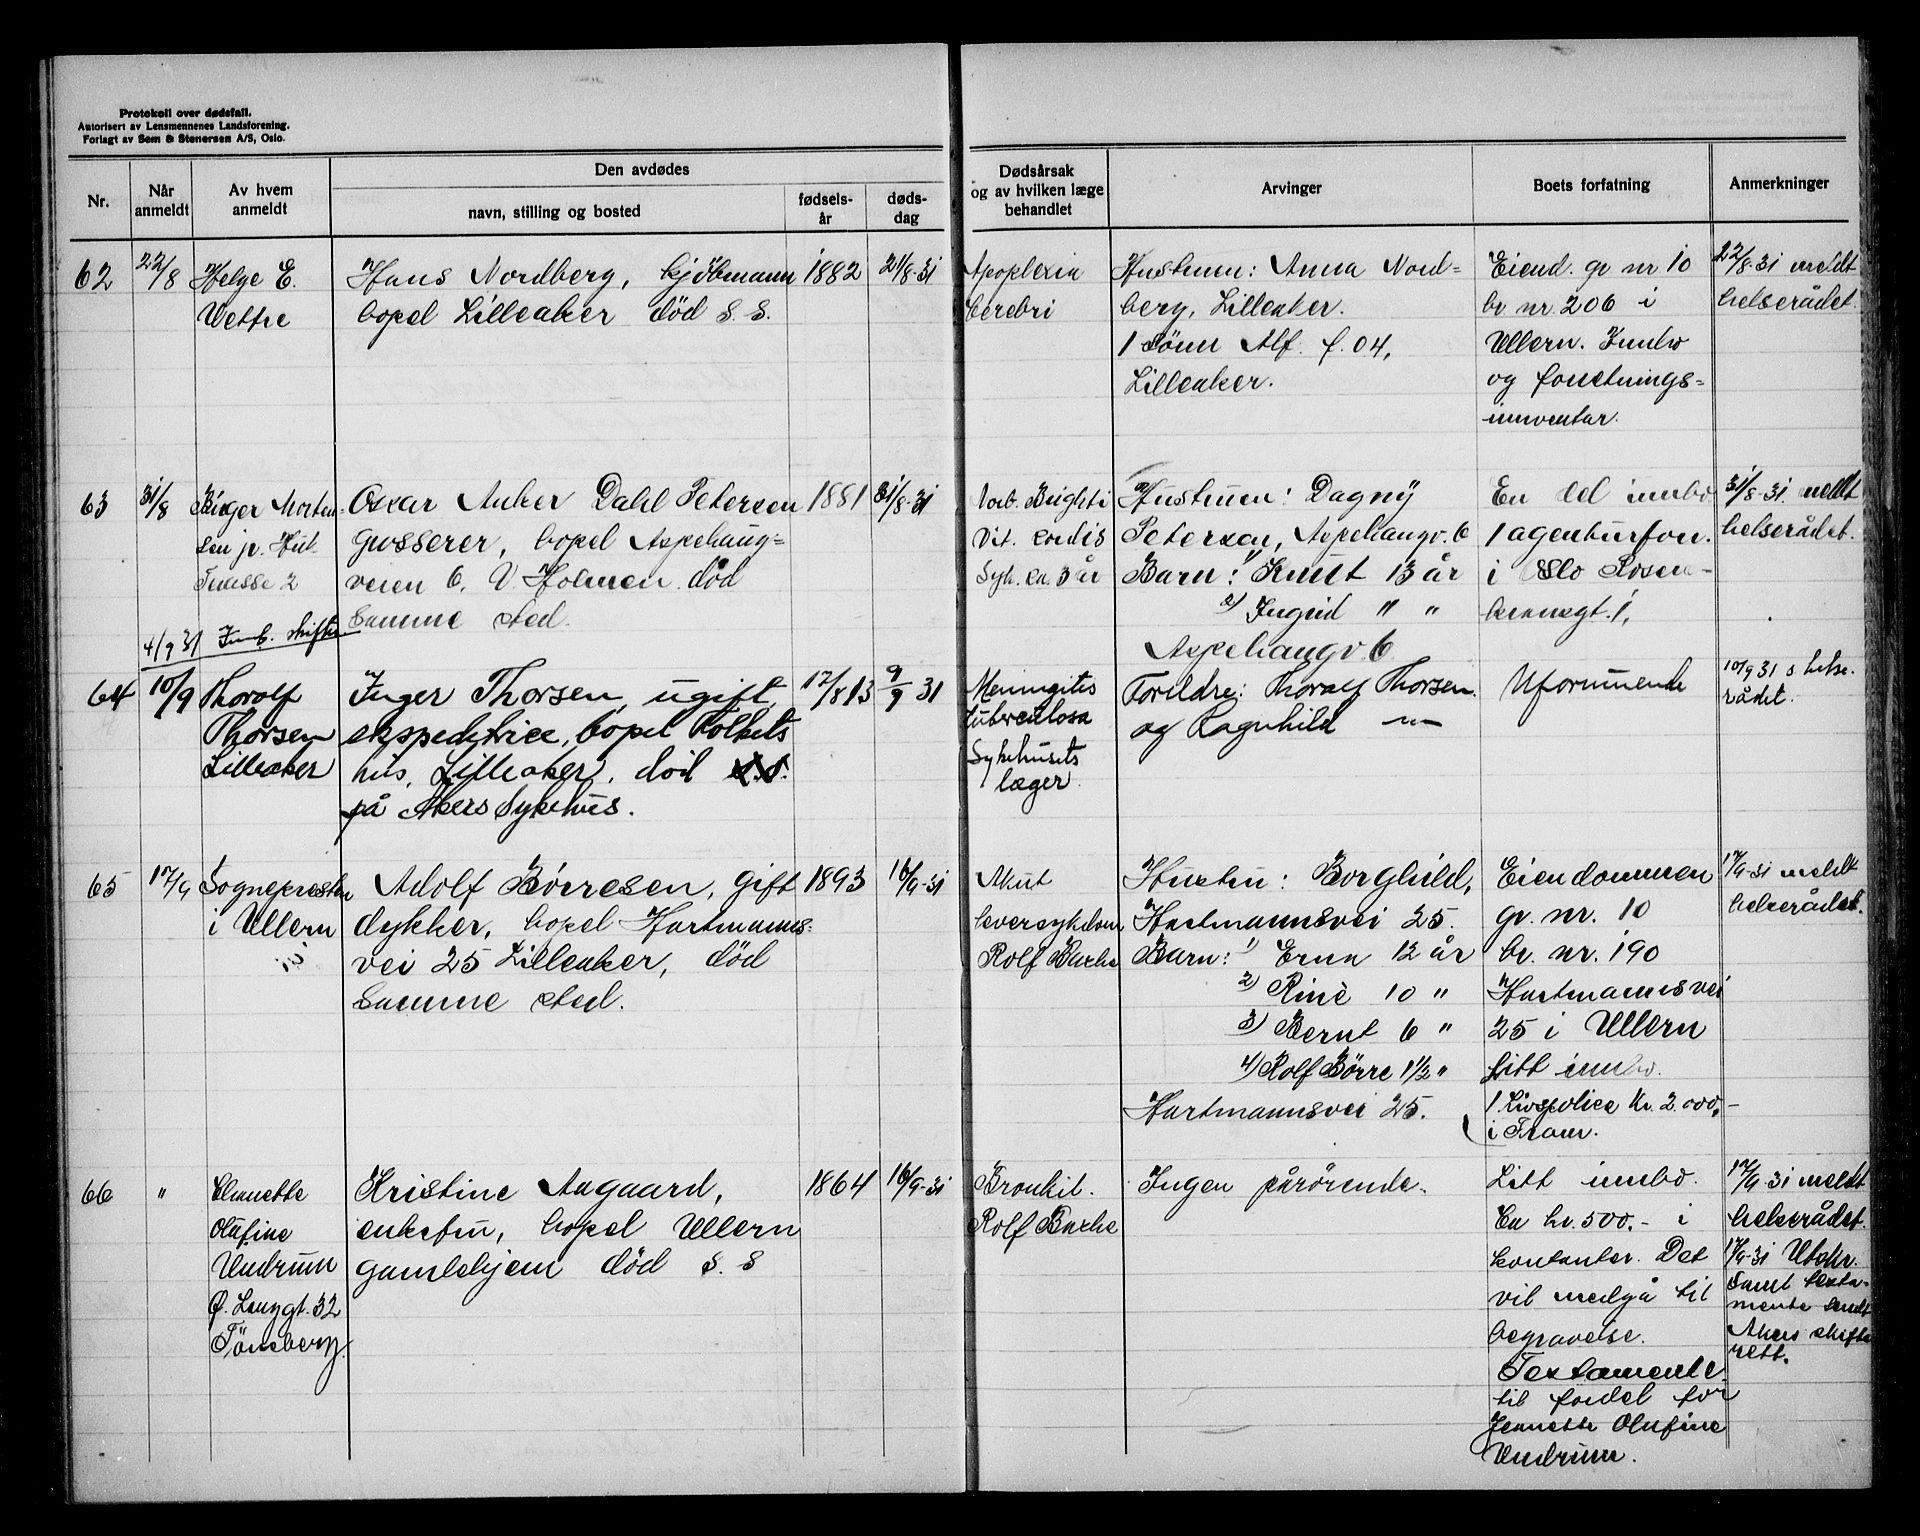 Protokoll over dødsfall.
Autorisert av Lensmennenes Landsforening.
Forlagt av Sem & Stenersen A/S, Oslo.
Nr.
Når anmeldt
Av hvem anmeldt
Den avdødes
navn, stilling og bosted
fødsels-år
døds-dag
Dødsårsak
og av hvilken læge
behandlet
Arvinger
Boets forfatning
Anmerkninger
62
22/8
Helge E.
Wettre
Hans Nordberg, kjøbmann
bopel Lilleaker død s. s.
1882
21/8-31
Apoplexia
cerebri
Hustruen: Anna Nord=
berg, Lilleaker.
1 sønn Alf. f. 04,
Lilleaker.
Eiend. gr nr 10
br nr 206 i
Ullern. Innbo
og forretnings=
innventar.
22/8-31 meldt
helserådet.
63
31/8
Birger Morten=
sen jr.
2
4/9 31
Oscar Anker Dahl Petersen
grosserer, bopel Aspehaug=
veien 6. V. Holmen død
samme sted.
1881
31/8-31
Morb. Brighti
Vit. cordis
Syk. ca. 3 år
Hustruen: Dagny
Petersen, Aspehaugv. 6
Barn: 1) Knut 13 år
2) Ingrid " "
Aspehaugv 6
En del innbo
1 agenturforr.
i Oslo Rosen-
kransgt. 1.
31/8-31. meldt
helserådet.
64
10/9
Thorolf
Thorsen
Lilleaker
Inger Thorsen, ugift
ekspeditrice, bopel Folkets
hus, Lilleaker, død s.s.
på Akers Sykehus.
17/8 13
9/9 31
Meningites
tuberculosa
Sykehusets
læger.
Foreldre: Thoralf Thorsen.
og Ragnhild —"—
Uformuende
10/9 31 s helse.
rådet.
65
17/9
Sognepresten
i Ullern
Adolf Børresen, gift
dykker, bopel Hartmanns=
vei 25 Lilleaker, død
samme sted.
1893
16/9-31
Akut
leversykdom
Rolf Bache
Hustru: Borghild,
Hartmannsvei 25.
Barn: 1) Erna 12 år
2) Rine 10 "
3) Bernt 6 "
4) Rolf Børre 1 1/2 "
Hartmannsvei 25.
Eiendommen
gr. nr. 10
br. nr. 190
Hartmannsvei
25 i Ullern
Litt innbo.
1 Livspolice Kr. 2.000,-
i Fram.
17/9-31 meldt
helserådet.
66
"
Olufine
Undrum
Ø. Langgt. 32
Tønsberg.
Kristine Aagaard,
enkefru, bopel Ullern
gamlehjem død s. s
1864
16/9-31
Bronkit.
Rolf Bache
Ingen pårørende.
Litt innbo.
Ca kr. 500.- i
kontanter. Det
vil medgå til
begravelse.
Testamente
til fordel for
Jeanette Olufine
Undrum.
17/9-31 meldt
helserådet.
17/9-31 Utskr.
samt testa-
mente sendt
Akers skifte
rett.